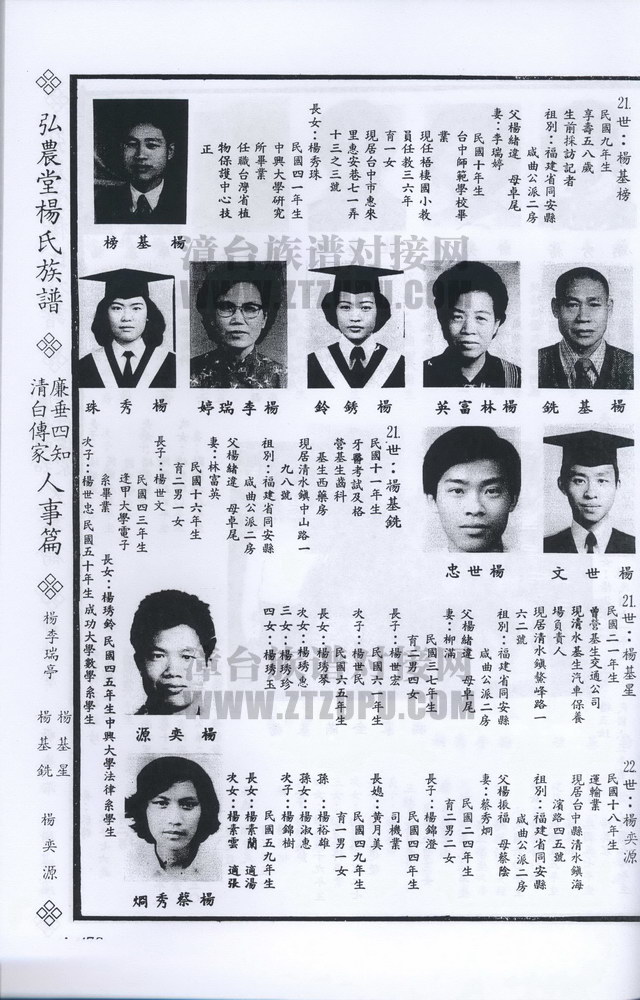 弘農堂楊氏族譜
廉垂四知
清白傳家
人事篇
楊李瑞亭
楊基星
楊基銑
楊奕源
21.世：楊基榜
民國九年生
享壽五八歲
生前採訪記者
祖別：福建省同安縣
咸曲公派二房
父楊緒達 母卓尾
妻：李瑞婷
民國十年生
台中師範學校畢
業
現任梧棲國小教
員任教三六年
育一女
現居台中市惠來
里惠安巷七一弄
十三之三號
長女：楊秀珠
民國四一年生
中興大學研究
所畢業
任職台灣省植
物保護中心技
正
榜基楊
珠秀楊
婷瑞李楊
鈴銹楊
英富林楊
銑基楊
21.世：楊基銑
民國十一年生
牙醫考試及格
營基生齒科
基生西藥房
現居清水鎮中山路一
九八號
祖別：福建省同安縣
咸曲公派二房
父楊緒達 母卓尾
妻：林富英
民國十六年生
育二男一女
長子：楊世文
民國四三年生
逢甲大學電子
系畢業
長女：楊琇鈴 民國四五年生中興大學法律系學生
次子：楊世忠 民國五十年生 成功大學數學系學生
忠世楊
文世楊
21.世：楊基星
民國二一年生
曾營基生交通公司
現清水基生汽車保養
場負責人
現居清水鎮鰲峰路一
六二號
祖別：福建省同安縣
咸曲公派二房
父楊緒達 母卓尾
妻：柳滿
民國三七年生
育二男四女
長子：楊世宏
民國六一年生
次子：楊世民
民國六五年生
長女：楊琇琴
次女：楊琇惠
三女：楊琇珍
四女：楊琇玉
源奕楊
22.世：楊奕源
民國十八年生
運輸業
現居台中縣清水鎮海
濱路四五號
祖別：福建省同安縣
咸曲公派二房
父楊振福 母蔡陰
妻：蔡秀烱
民國二四年生
育二男二女
長子：楊錦澄
民國四四年生
司機業
長媳：黃月美
民國四九年生
育一男一女
孫：楊裕雄
孫女：楊淑惠
次子：楊錦樹
民國五九年生
長女：楊素蘭 適湯
次女：楊素雲 適張
烱秀蔡楊
漳台族谱对接网
WWW.ZTZUPU.COM
漳台族谱对接网
WWW.ZTZUPU.COM